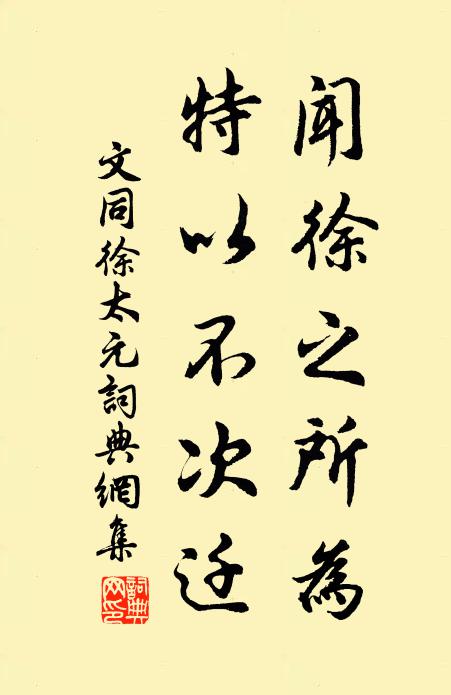 闻徐之所為
特以不次迁
文同徐太元詞典網集
詞典網印